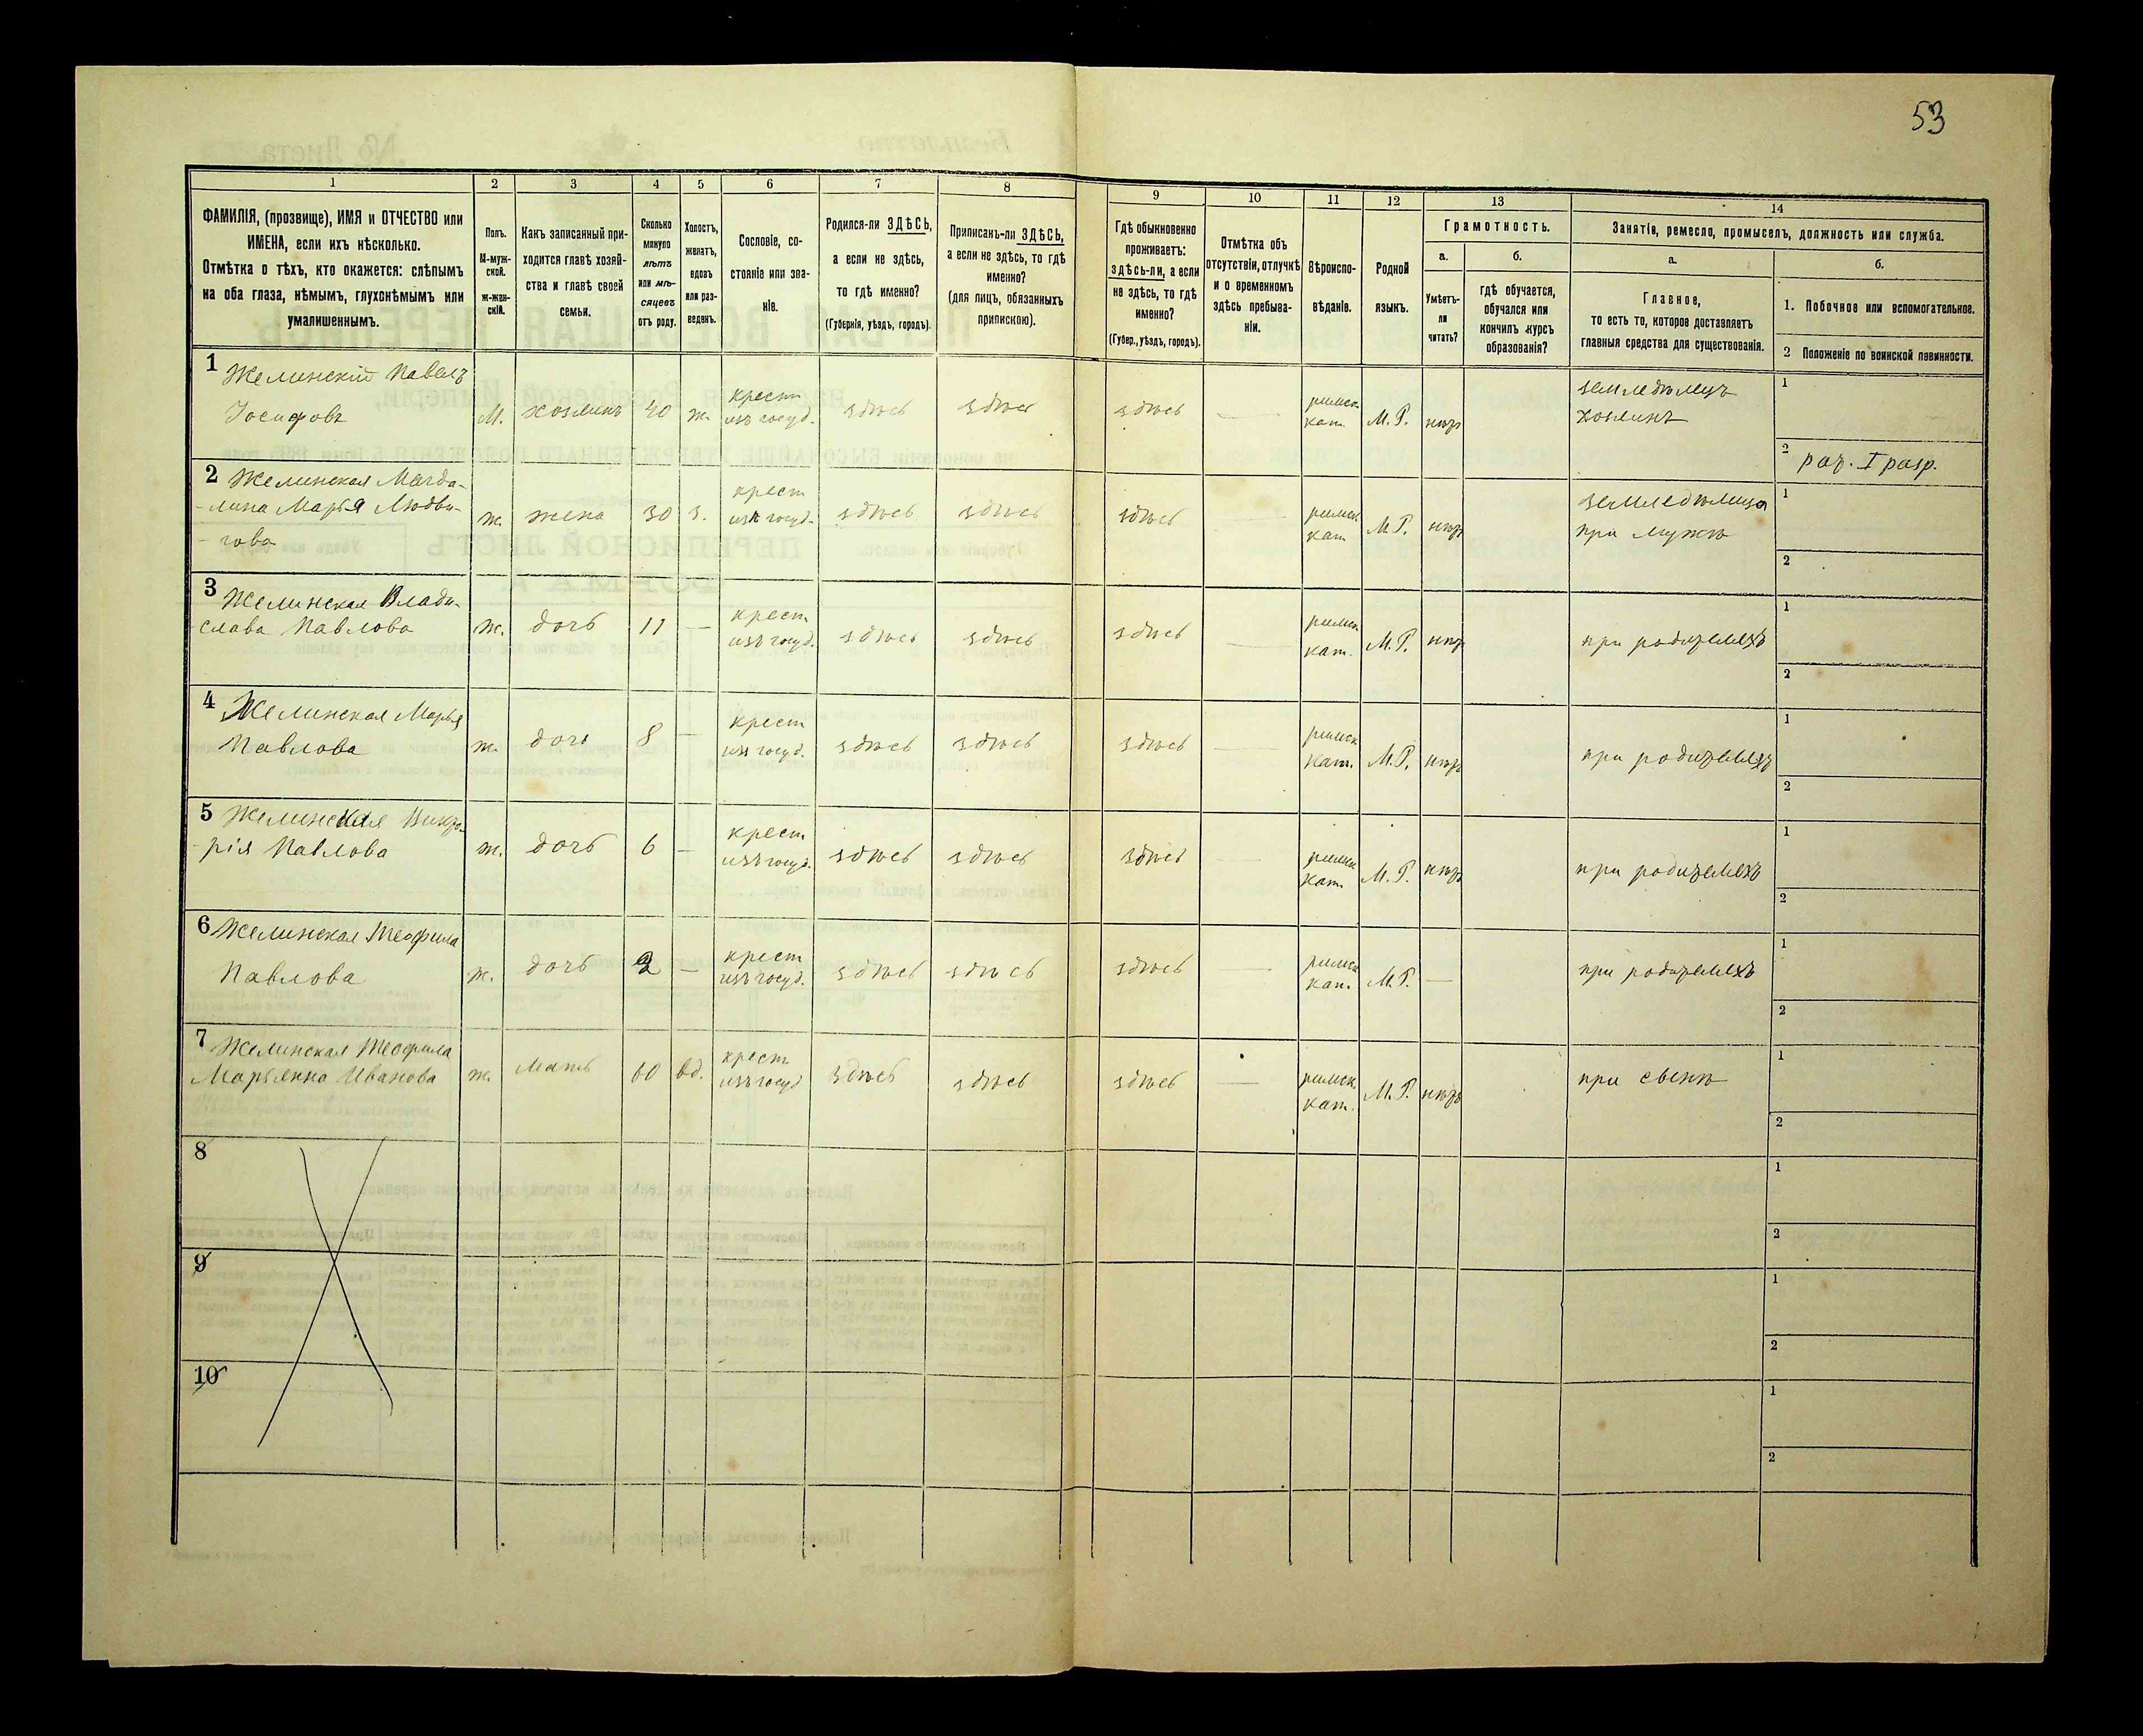 53
1 2 3 4 5 6 7 8 9 10 11 12 13 14
ФАМИЛІЯ, (прозвище), ИМЯ и ОТЧЕСТВО или
ИМЕНА, если ихъ нѣсколько.
Отмѣтка о тѣхъ, кто окажется: слѣпымъ
на оба глаза, нѣмымъ, глухонѣмымъ или
умалишеннымъ.
Полъ.
М-муж-
ской.
ж-жен-
скій.
Какъ записанный при-
ходится главѣ хозяй-
ства и главѣ своей
семьи.
Сколько
минуло
лѣтъ
или мѣ-
сяцевъ
отъ роду.
Холостъ,
женатъ,
вдовъ
или раз-
веденъ.
Сословіе, со-
стояніе или зва-
ніе.
Родился-ли ЗДѢСЬ,
а если не здѣсь,
то гдѣ именно?
(Губернія, уѣздъ, городъ).
Приписанъ-ли ЗДѢСЬ,
а если не здѣсь, то гдѣ
именно?
(для лицъ, обязанныхъ
припискою).
Гдѣ обыкновенно
проживаетъ:
здѣсь-ли, а если
не здѣсь, то гдѣ
именно?
(Губер., уѣздъ, городъ).
Отмѣтка объ
отсутствіи, отлучкѣ
и о временномъ
здѣсь пребыва-
ніи.
Вѣроиспо-
вѣданіе.
Родной
языкъ.
Грамотность.
а.
Умѣетъ-
ли
читать?
б.
гдѣ обучается,
обучался или
кончилъ курсъ
образованія?
Занятіе, ремесло, промыселъ, должность или служба.
а.
Главное,
то есть то, которое доставляетъ
главныя средства для существованія.
б.
1. Побочное или вспомогательное.
2 Положеніе по воинской повинности.
1 Желинскій Павелъ
Іосифовъ
М. хозяинъ 40 ж.
крест
изъ госуд.
здѣсь здѣсь здѣсь —
римск.
кат.
М.Р. нѣтъ
земледѣлецъ
хозяинъ
1
2 рат. I разр.
2 Желинская Магда-
-лина Марья Людви-
-гова
ж. жена 30 з.
крест
изъ госуд.
здѣсь здѣсь здѣсь
римск.
кат
М.Р. нѣтъ
земледѣлица
при мужѣ
1
2
3 Желинская Влади-
слава Павлова
ж. дочь 11 —
крест
изъ госуд.
здѣсь здѣсь здѣсь —
римск.
кат.
М.Р. нѣтъ
при родителяхъ
1
2
4 Желинская Марья
Павлова
ж. дочь 8 —
крест
изъ госуд.
здѣсь здѣсь здѣсь —
римск
кат.
М.Р. нѣтъ
при родителяхъ
1
2
5 Желинская Викто-
рія Павлова
ж. дочь 6 —
крест
изъ госуд.
здѣсь здѣсь здѣсь —
римск
кат.
М.Р. нѣтъ
при родителяхъ
1
2
6 Желинская Теофила
Павлова
ж. дочь 2 —
крест
изъ госуд.
здѣсь здѣсь здѣсь —
римск
кат.
М.Р. —
при родителяхъ
1
2
7 Желинская Теофила
Марьянна Иванова
ж. мать 60 вд.
крест
изъ госуд
здѣсь здѣсь здѣсь —
римск.
кат.
М.Р. нѣтъ
при сынѣ
1
2
8
1
2
9
1
2
10
1
2